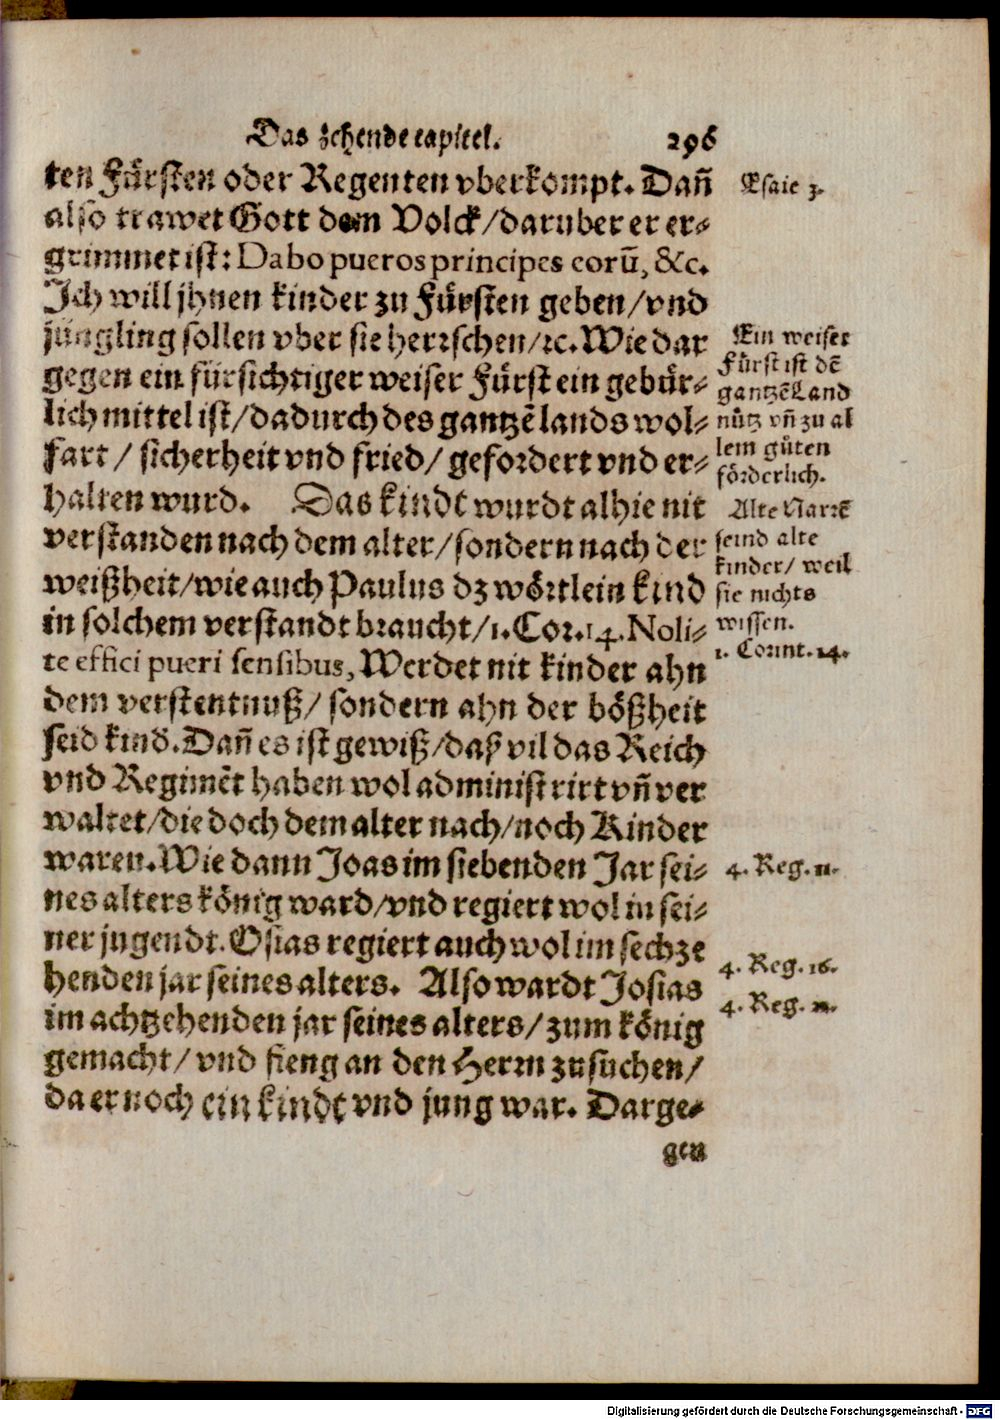 Das zehende capitel. 296
ten Fürsten oder Regenten vberkompt. Dañ
also trawet Gott dem Volck/daruber er er⸗
grimmet ist: Dabo pueros principes eorũ, &c.
Ich will jhnen kinder zu Fürsten geben/vnd
jüngling sollen vber sie herrschen/ꝛc. Wie dar
gegen ein fürsichtiger weiser Fürst ein gebür⸗
lich mittel ist/dadurch des gantzẽ lands wol⸗
fart/ sicherheit vnd fried/ gefordert vnd er⸗
halten wurd. Das kindt wurdt alhie nit
verstanden nach dem alter/sondern nach der
weißheit/wie auch Paulus dz wörtlein kind
in solchem verstandt braucht/1. Cor. 14. Noli⸗
te effici pueri sensibus, Werdet nit kinder ahn
dem verstentnuß/ sondern ahn der bößheit
seid kind. Dañ es ist gewiß/daß vil das Reich
vnd Regimẽt haben wol administrirt vñ ver
waltet/die doch dem alter nach/noch Kinder
waren. Wie dann Joas im siebenden Jar sei⸗
nes alters könig ward/vnd regiert wol in sei⸗
ner jugendt. Osias regiert auch wol im sechze
henden jar seines alters. Also wardt Josias
im achtzehenden jar seines alters/ zum könig
gemacht/ vnd fieng an den Herrn zu suchen/
da er noch ein kindt vnd jung war. Darge⸗
gen
Esaie 3.
Ein weiser
Fürst ist dẽ
gantzẽ Land
nütz vñ zu al
lem güten
förderlich.
Alte Narrẽ
seind alte
kinder/ weil
sie nichts
wissen.
1. Corint. 14.
4. Reg. 11.
4. Reg. 16.
4. Reg. 22.
Digitalisierung gefördert durch die Deutsche Forschungsgemeinschaft - DFG